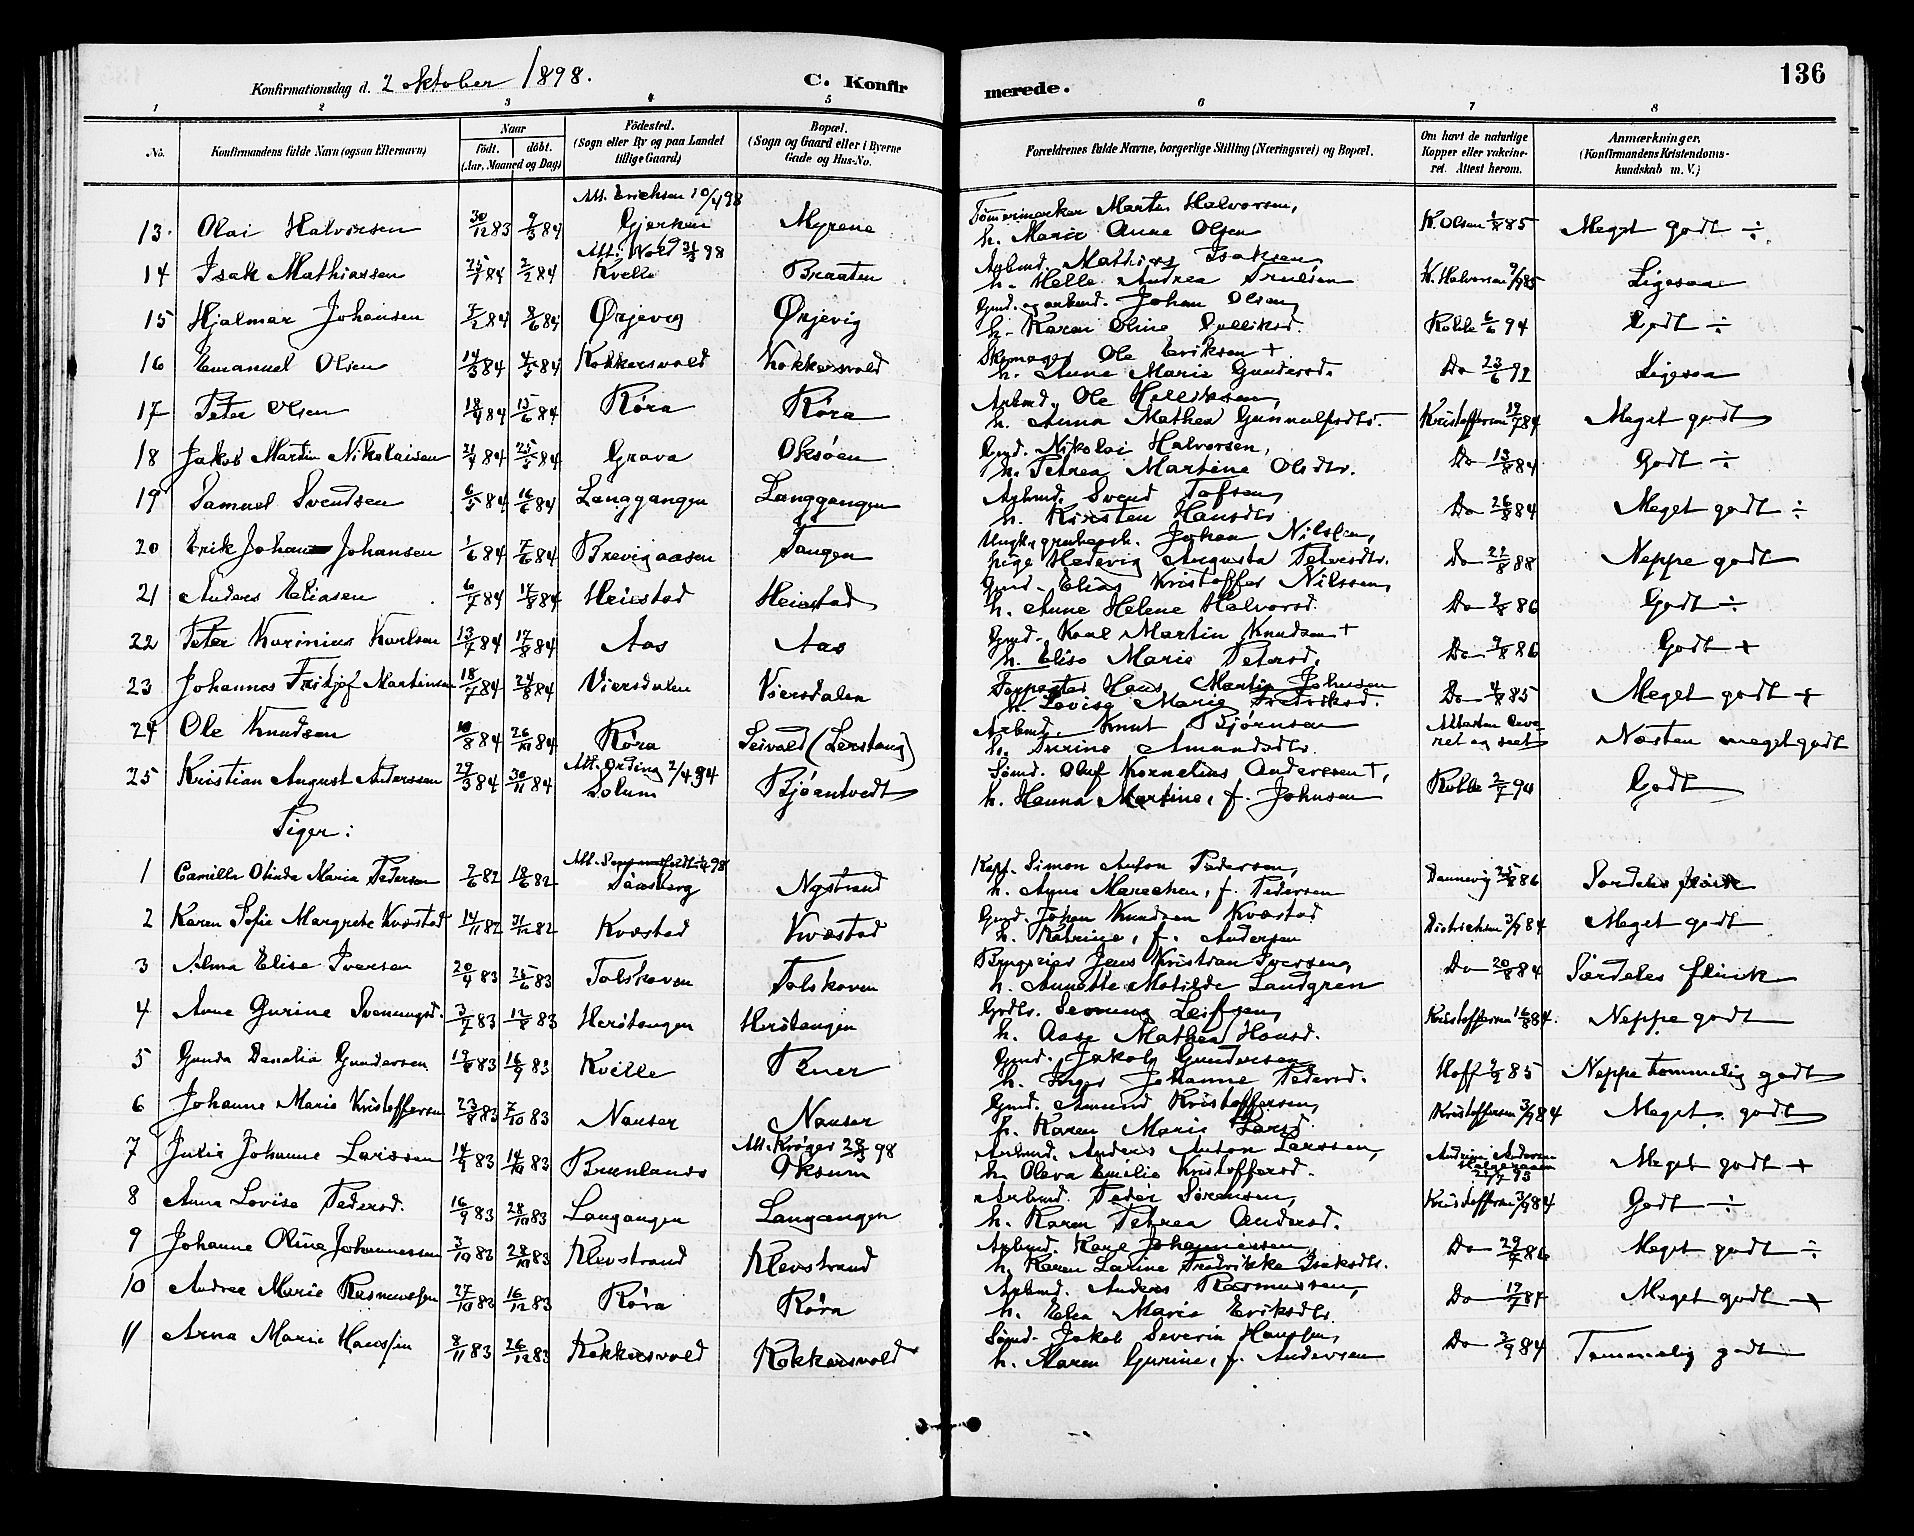 136
Konfirmationsdag d. 2 oktober 1898.
C. Konfirmerede.
1 2 3 4 5 6 7 8
No.
Konfirmandens fulde Navn (ogsaa Efternavn)
Naar
født. døbt.
(Aar, Maaned og Dag)
Fødested.
(Sogn eller By og paa Landet
tillige Gaard)
Bopæl.
(Sogn og Gaard eller i Byerne
Gade og Hus-No.
Forældrenes fulde Navne, borgerlige Stilling (Næringsvei) og Bopæl.
Om havt de naturlige
Kopper eller vakcine-
ret. Attest herom.
Anmærkninger.
(Konfirmandens Kristendoms-
kundskab m. V.)
Att. Erichsen 10/4 98
13. Olai Halvorsen 30/12 83 9/3 84 Gjerpen Myrene
Tømmermærker Martin Halvorsen,
h. Marie Anne Olsen
K. Olsen 1/8 85 Meget godt ÷
Att. Wold 31/3 98
14 Isak Mathiassen 25/1 84 2/2 84 Kvelle Braaten
Arbmd. Mathias Isaksen,
h. Helle Andrea Truelsen
K. Halvorsen 9/9 85 Ligesaa
15 Hjalmar Johansen 3/2 84 8/6 84 Ørjevig Ørjevig
Gmd. og arbmd. Johan Olsen,
h. Karen Oline Gulliksd.
Kolbe 6/6 94 Godt ÷
16 Emanuel Olsen 14/3 84 4/5 84 Kokkersvold Kokkersvold
Skomager Ole Eriksen +
h. Anne Marie Gundersd.
Do 23/6 92 Ligesaa
17 Peter Olsen 18/4 84 15/6 84 Røra Røra
Arbmd. Ole Helliksen,
h. Anna Mathea Gunnulfsdtr.
Kristoffersen 19/7 84 Meget godt
18 Jakob Martin Nikolaisen 21/4 84 25/5 84 Grava Oksøen
Gmd. Nikolai Halvorsen,
h. Petrea Martine Olsdtr.
Do 13/8 84 Godt ÷
19 Samuel Svendsen 6/5 84 16/6 84 Langgangen Langgangen
Arbmd. Svend Tofsen,
h. Kirsten Hansdtr
Do 26/8 84 Meget godt ÷
20 Erik Johan Johansen 1/6 84 7/6 84 Brevigaasen Tangen
Ungk. grubearb. Johan Nilssen,
pige Hedevig Augusta Petersdtr.
Do 22/8 88 Neppe godt
21 Anders Eliasen 6/7 84 17/8 84 Heistad Heistad
Gmd. Elias Kristoffer Nilssen,
h. Anne Helene Halvorsd.
Do 9/8 86 Godt ÷
22 Peter Karinius Karlsen 13/7 84 17/8 84 Aas Aas
Gmd. Karl Martin Knudsen +
h. Elise Marie Petersd.
Do 9/8 86 Godt +
23 Johannes Fritjof Martinsen 18/7 84 24/8 84 Viersdalen Viersdalen
Forpagter Hans Martin Johnsen
h. Lovise Marie Fredriksd.
Do 4/8 85 Meget godt +
24 Ole Knudsen 10/8 84 26/10 84 Røra Seivald (Lerstang)
Arbmd. Knut Bjørnsen
h. Amundsdtr.
Attesten leve
ret og seet Næsten meget godt
Att. Ording 2/4 94
25 Kristian August Anderssen 29/3 84 30/11 84 Solum Bjørntvedt
Sømd. Oluf Kornelius Anderssen +,
h. Hanna Martine, f. Johnsen
Kolbe 2/7 94 Godt
Piger:
1 Camilla Olinda Maria Pedersen 2/6 82 18/6 82 Sarpsborg Nystrand
Kapt. Simon Anton Pedersen,
h. Agnes Marechen, f. Pedersen
Dannevig 25/8 86 Særdeles flink
2 Karen Sofie Margrete Kvæstad 14/11 82 31/12 82 Kvæstad Kvæstad
Gmd. Johan Knudsen Kvæstad
h. Katrine, f. Andersen
Dietrichsen 3/9 84 Meget godt
3 Alma Elise Iversen 20/4 83 25/6 83 Tolskoven Tolskoven
Jens Kristian Iversen,
h. Annette Matilde Landgren
Do 20/8 84 Særdeles flink
4 Anne Gurine Svenungsd. 3/7 83 12/8 83 Herstangen Herstangen
Leifsen,
h. Aase Mathea Hansd.
Kristoffersen 16/8 84. Neppe godt
5 Gunda Danelia Gundersen 19/8 83 16/9 83 Kville Bener
Gmd. Jakob Gundersen
h. Inger Johanne Pedersd.
Hoff 4/2 85 Neppe tommelig godt
6 Johanne Marie Kristoffersen 23/8 83 7/10 83 Nauser Nauser
Gmd. Amund Kristoffersen,
h. Karen Marie Larsd.
Kristoffersen 3/9 84 Meget godt
Att. Krøger 28/3 98
7 Julie Johanne Larssen 14/9 83 14/10 83 Brunlanæs Oksum
Arbmd. Anders Anton Larssen,
h. Oleva Emelie Kristoffersd.
Andrine Andersen
Helgeroaen
21/7 93 Meget godt +
8 Anna Lovise Pedersd. 16/9 83 28/10 83 Langangen Langangen
Arbmd. Peder Sørensen,
h. Karen Petrea Andersd.
Kristoffersen 3/9 84 Godt ÷
9 Johanne Oline Johannessen 3/10 83 28/10 83 Klevstrand Klevstrand
Arbmd. Karl Johannessen,
h. Karen Larine Fredrikke Isaksdtr.
Do 29/7 86 Meget godt ÷
10 Andrea Marie Rasmussen 27/10 83 16/12 83 Røra Røra
Arbmd. Anders Rasmussen,
h. Elen Marie Eriksdtr.
Do 17/7 84 Meget godt +
11 Anna Marie Hanssen 8/11 83 26/12 83 Kokkersvold Kokkersvold
Sømd. Jakob Severin Hanssen,
h. Maren Gurine, f. Andersen
Do 2/9 84 Tommelig godt